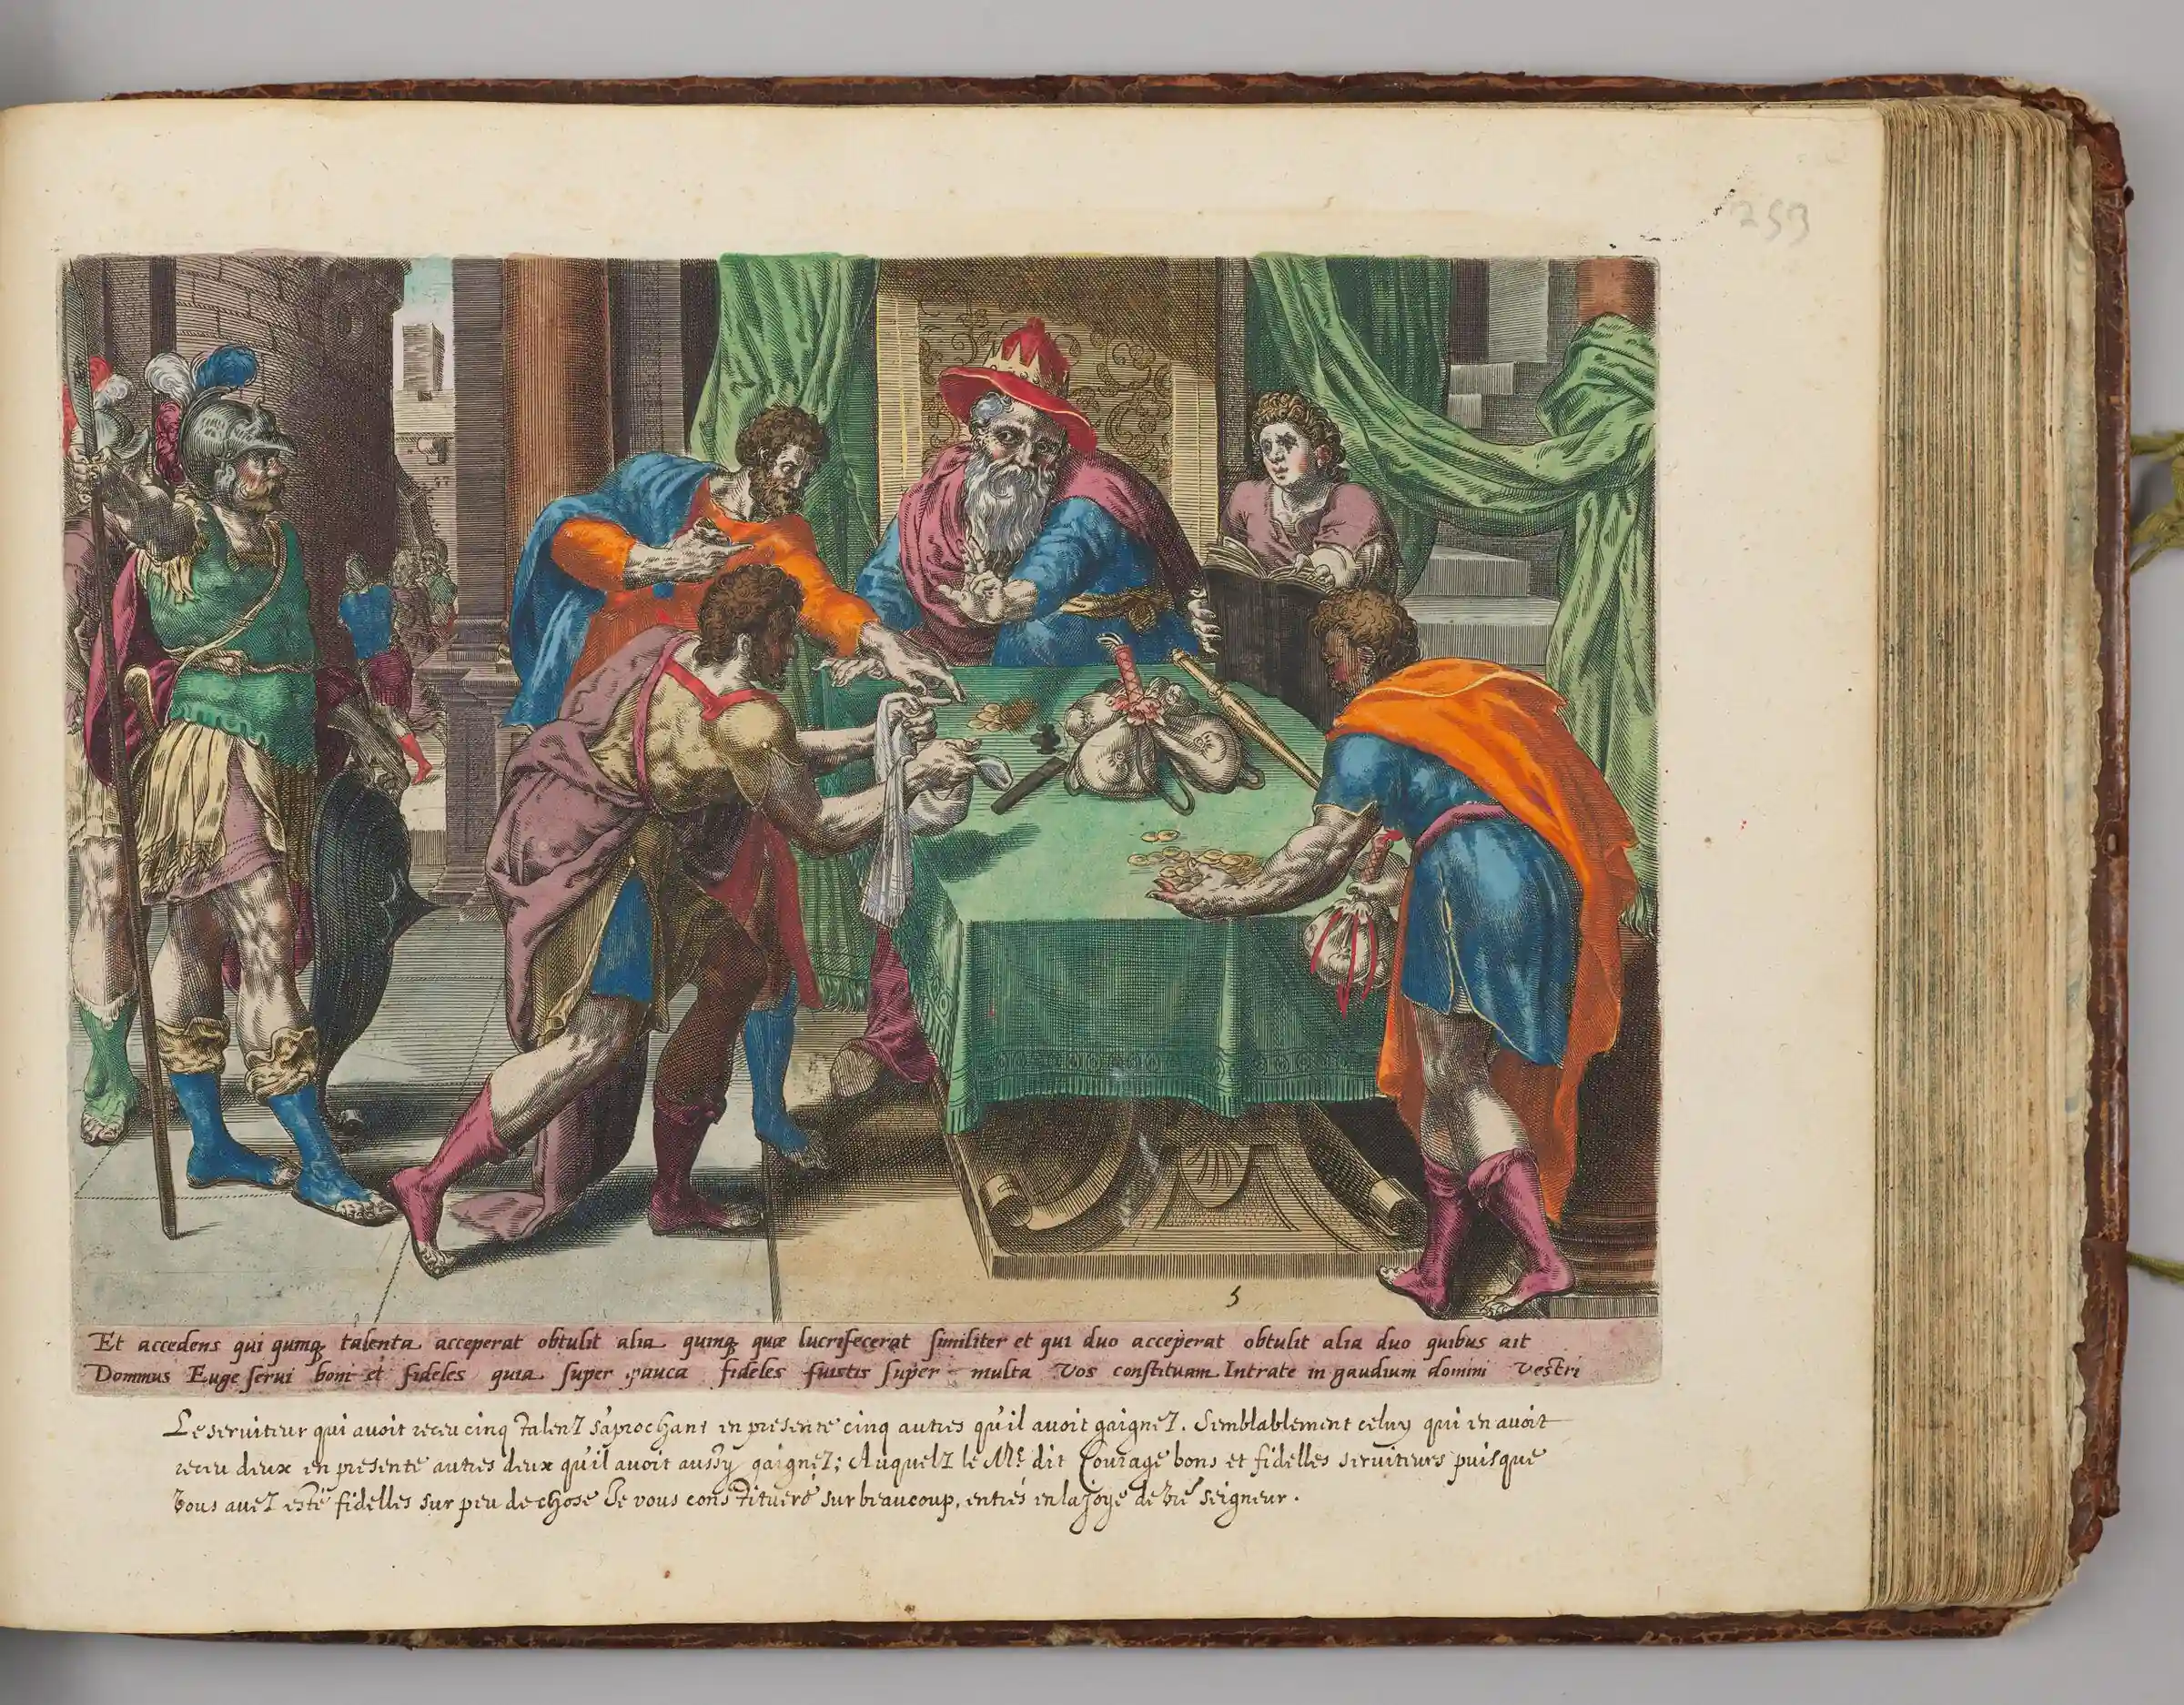 259
5
Et accedens qui quinq talenta acceperat obtulit alia quinq quæ lucrifecerat similiter et qui duo acceperat obtulit alia duo quibus ait
Dominus Euge servi boni et fideles quia super pauca fideles fuistis super multa vos constituam Intrate in gaudium domini vestri
Le seruiteur qui auoit receu cinq talentz s'aprochant en presente cinq autres qu'il auoit gaignez. Semblablement celuy qui en auoit
receu deux en presente autres deux qu'il auoit aussy gaignez; Auquelz le Mr dit Courage bons et fidelles seruiteurs puisque
vous auez esté fidelles sur peu de chose Je vous constitueré sur beaucoup, entrés en la joye de vre seigneur.